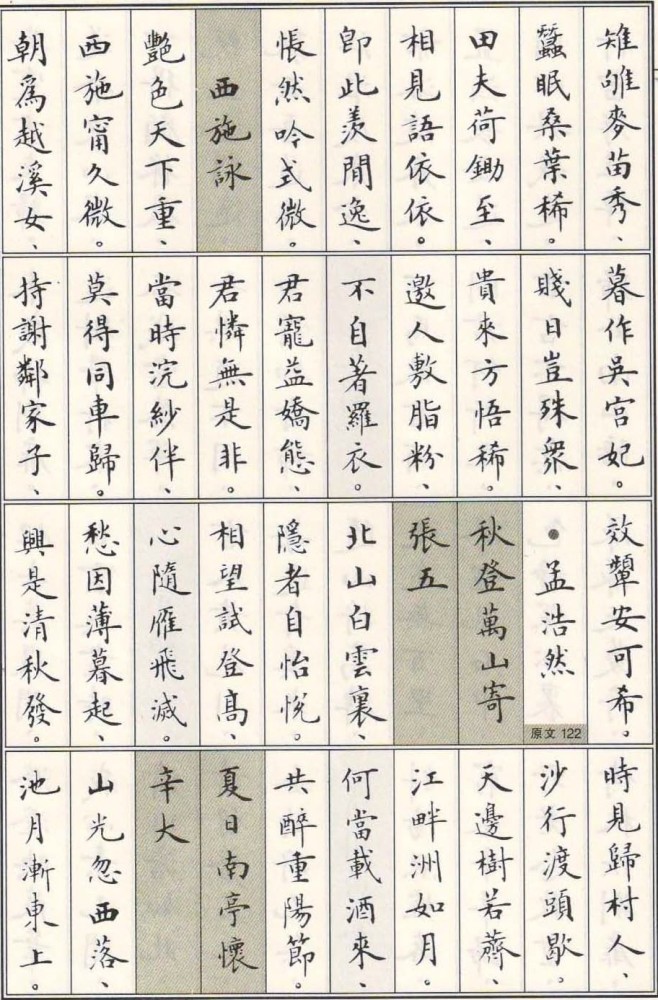 雉雊麥苗秀、
蠶眠桑葉稀。
田夫荷鋤至、
相見語依依。
即此羨閒逸、
悵然吟式微。
西施詠
艷色天下重、
西施甯久微。
朝爲越溪女、
暮作吳宮妃。
賤日豈殊衆、
貴來方悟稀。
邀人敷脂粉、
不自著羅衣。
君寵益嬌態、
君憐無是非。
當時浣紗伴、
莫得同車歸。
持謝鄰家子、
效顰安可希。
●孟浩然
原文 122
秋登萬山寄
張五
北山白雲裏、
隱者自怡悅。
相望試登高、
心隨雁飛滅。
愁因薄暮起、
興是清秋發。
時見歸村人、
沙行渡頭歇。
天邊樹若薺、
江畔洲如月。
何當載酒來、
共醉重陽節。
夏日南亭懷
辛大
山光忽西落、
池月漸東上。